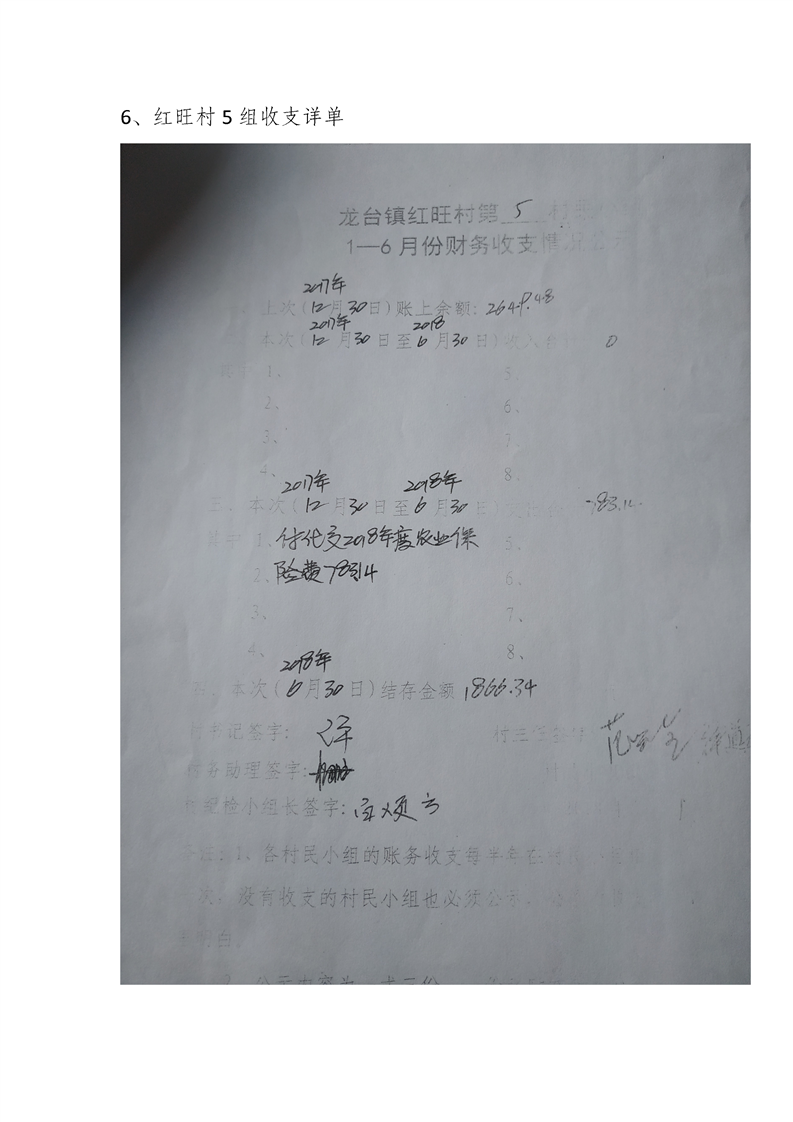 6、红旺村5组收支详单
龙台镇红旺村第 5 村民
1—6月份财务收支情况公示
2017年
上次(12月30日)账上余额: 2649.48
2017年 2018
本次(12月30日至6月30日)收入合计 0
1、 5、
2、 6、
3、 7、
4、 8、
2017年 2018年
三、本次(12月30日至6月30日)支出 783.14
1、付代交2018年度农业保 5、
2、险费783.14 6、
3、 7、
4、 8、
2018年
本次(6月30日)结存金额 1866.34
村书记签字: 村主任签字
财务助理签字:
村纪检小组长签字:
备注:1、各村民小组的账务收支每半年在村
一次,没有收支的村民小组也必须公示,
明白。
2、公示内容为一式三份